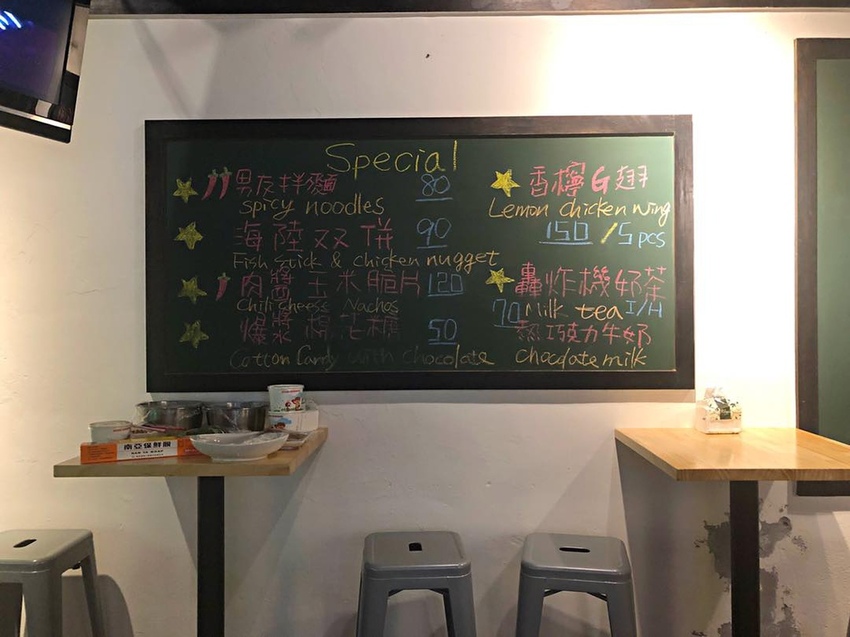 Special
男友拌麵 80
spicy noodles
海陸双併 90
Fish Stick & chicken nugget
肉醬玉米脆片 120
Chili cheess Nachos
爆漿棉花糖 50
Cotton Candy with chocolate
香檸G翅
Lemon chicken wing
150 / 5 pcs
轟炸機奶茶
70 milk tea I/H
熱巧克力牛奶
chocdate milk
南亞保鮮膜